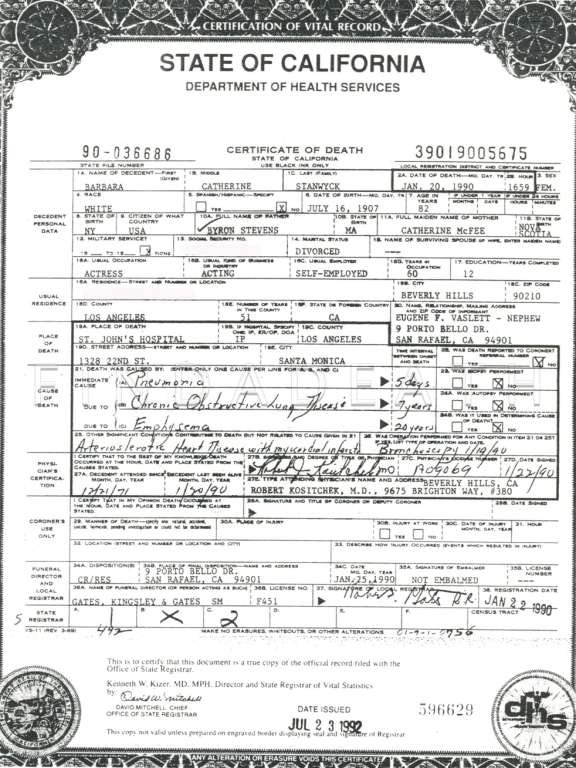 CERTIFICATION OF VITAL RECORD
STATE OF CALIFORNIA
DEPARTMENT OF HEALTH SERVICES
90-036686 CERTIFICATE OF DEATH 39019005675
STATE FILE NUMBER STATE OF CALIFORNIA LOCAL REGISTRATION DISTRICT AND CERTIFICATE NUMBER
USE BLACK INK ONLY
1A. NAME OF DECEDENT—FIRST (GIVEN) 1B. MIDDLE 1C. LAST (FAMILY) 2A. DATE OF DEATH—MO, DAY, YR 2B. HOUR 3. SEX
BARBARA CATHERINE STANWYCK JAN. 20, 1990 1659 FEM.
4. RACE 5. SPANISH/HISPANIC—SPECIFY 6. DATE OF BIRTH—MO, DAY, YR 7. AGE IN YEARS IF UNDER 1 YEAR IF UNDER 24 HOURS
MONTHS DAYS HOURS MINUTES
WHITE YES X NO JULY 16, 1907 82
DECEDENT PERSONAL DATA
8. STATE OF BIRTH 9. CITIZEN OF WHAT COUNTRY 10A. FULL NAME OF FATHER 10B. STATE OF BIRTH 11A. FULL MAIDEN NAME OF MOTHER 11B. STATE OF BIRTH
NY USA BYRON STEVENS MA CATHERINE McFEE NOVA SCOTIA
12. MILITARY SERVICE? 13. SOCIAL SECURITY NO. 14. MARITAL STATUS 15. NAME OF SURVIVING SPOUSE (IF WIFE, ENTER MAIDEN NAME)
19 TO 19 X NONE DIVORCED
16A. USUAL OCCUPATION 16B. USUAL KIND OF BUSINESS OR INDUSTRY 16C. USUAL EMPLOYER 16D. YEARS IN OCCUPATION 17. EDUCATION—YEARS COMPLETED
ACTRESS ACTING SELF-EMPLOYED 60 12
USUAL RESIDENCE
18A. RESIDENCE—STREET AND NUMBER OR LOCATION 18B. CITY 18C. ZIP CODE
BEVERLY HILLS 90210
18D. COUNTY 18E. NUMBER OF YEARS IN THIS COUNTY 18F. STATE OR FOREIGN COUNTRY 20. NAME, RELATIONSHIP, MAILING ADDRESS AND ZIP CODE OF INFORMANT
LOS ANGELES 51 CA EUGENE F. VASLETT - NEPHEW
9 PORTO BELLO DR.
SAN RAFAEL, CA 94901
PLACE OF DEATH
19A. PLACE OF DEATH 19B. IF HOSPITAL, SPECIFY ONE: IP, ER/OP, DOA 19C. COUNTY
ST. JOHN'S HOSPITAL IP LOS ANGELES
19D. STREET ADDRESS—STREET AND NUMBER OR LOCATION 19E. CITY
1328 22ND ST. SANTA MONICA
TIME INTERVAL BETWEEN ONSET AND DEATH
22. WAS DEATH REPORTED TO CORONER?
REFERRAL NUMBER
YES X NO
CAUSE OF DEATH
21. DEATH WAS CAUSED BY: (ENTER ONLY ONE CAUSE PER LINE FOR A, B, AND C)
IMMEDIATE CAUSE (A) Pneumonia 5 days
23. WAS BIOPSY PERFORMED?
YES X NO
DUE TO (B) Chronic Obstructive Lung Disease 7 years
24A. WAS AUTOPSY PERFORMED?
YES X NO
DUE TO (C) Emphysema 20 years
24B. WAS IT USED IN DETERMINING CAUSE OF DEATH?
YES NO
25. OTHER SIGNIFICANT CONDITIONS CONTRIBUTING TO DEATH BUT NOT RELATED TO CAUSE GIVEN IN 21 26. WAS OPERATION PERFORMED FOR ANY CONDITION IN ITEM 21 OR 25?
IF YES, LIST TYPE OF OPERATION AND DATE.
Arteriosclerotic Heart Disease with myocardial infarct Bronchoscopy 1/19/90
PHYSICIAN'S CERTIFICATION
I CERTIFY THAT TO THE BEST OF MY KNOWLEDGE DEATH OCCURRED AT THE HOUR, DATE AND PLACE STATED FROM THE CAUSES STATED.
27B. SIGNATURE AND DEGREE OR TITLE OF PHYSICIAN 27C. PHYSICIAN'S LICENSE NUMBER 27D. DATE SIGNED
A09069 1/22/90
27A. DECEDENT ATTENDED SINCE MONTH, DAY, YEAR DECEDENT LAST SEEN ALIVE MONTH, DAY, YEAR
12/21/71 1/20/90
27E. TYPE ATTENDING PHYSICIAN'S NAME AND ADDRESS BEVERLY HILLS, CA
ROBERT KOSITCHEK, M.D., 9675 BRIGHTON WAY, #380
CORONER'S USE ONLY
I CERTIFY THAT IN MY OPINION DEATH OCCURRED AT THE HOUR, DATE AND PLACE STATED FROM THE CAUSES STATED.
28A. SIGNATURE AND TITLE OF CORONER OR DEPUTY CORONER 28B. DATE SIGNED
29. MANNER OF DEATH 30A. PLACE OF INJURY 30B. INJURY AT WORK 30C. DATE OF INJURY MONTH, DAY, YEAR 31. HOUR
YES NO
32. LOCATION (STREET AND NUMBER OR LOCATION AND CITY) 33. DESCRIBE HOW INJURY OCCURRED (EVENTS WHICH RESULTED IN INJURY)
FUNERAL DIRECTOR AND LOCAL REGISTRAR
34A. DISPOSITION(S) 34B. PLACE OF FINAL DISPOSITION—NAME AND ADDRESS 34C. DATE MO, DAY, YEAR 35A. SIGNATURE OF EMBALMER 35B. LICENSE NUMBER
CR/RES 9 PORTO BELLO DR.
SAN RAFAEL, CA 94901 JAN.25,1990 NOT EMBALMED ---
36A. NAME OF FUNERAL DIRECTOR (OR PERSON ACTING AS SUCH) 36B. LICENSE NO. 37. SIGNATURE OF LOCAL REGISTRAR 38. REGISTRATION DATE
GATES, KINGSLEY & GATES SM F451 JAN 22 1990
STATE REGISTRAR
A. B. C. D. E. F. CENSUS TRACT
2
VS-11 (REV. 3-89) 492 MAKE NO ERASURES, WHITEOUTS, OR OTHER ALTERATIONS 01-9-1-0756
This is to certify that this document is a true copy of the official record filed with the
Office of State Registrar.
Kenneth W. Kizer, MD, MPH, Director and State Registrar of Vital Statistics
by: David W. Mitchell
DAVID MITCHELL, CHIEF
OFFICE OF STATE REGISTRAR
DATE ISSUED
JUL 23 1992
596629
This copy not valid unless prepared on engraved border displaying seal and signature of Registrar
dhs
ANY ALTERATION OR ERASURE VOIDS THIS CERTIFICATE